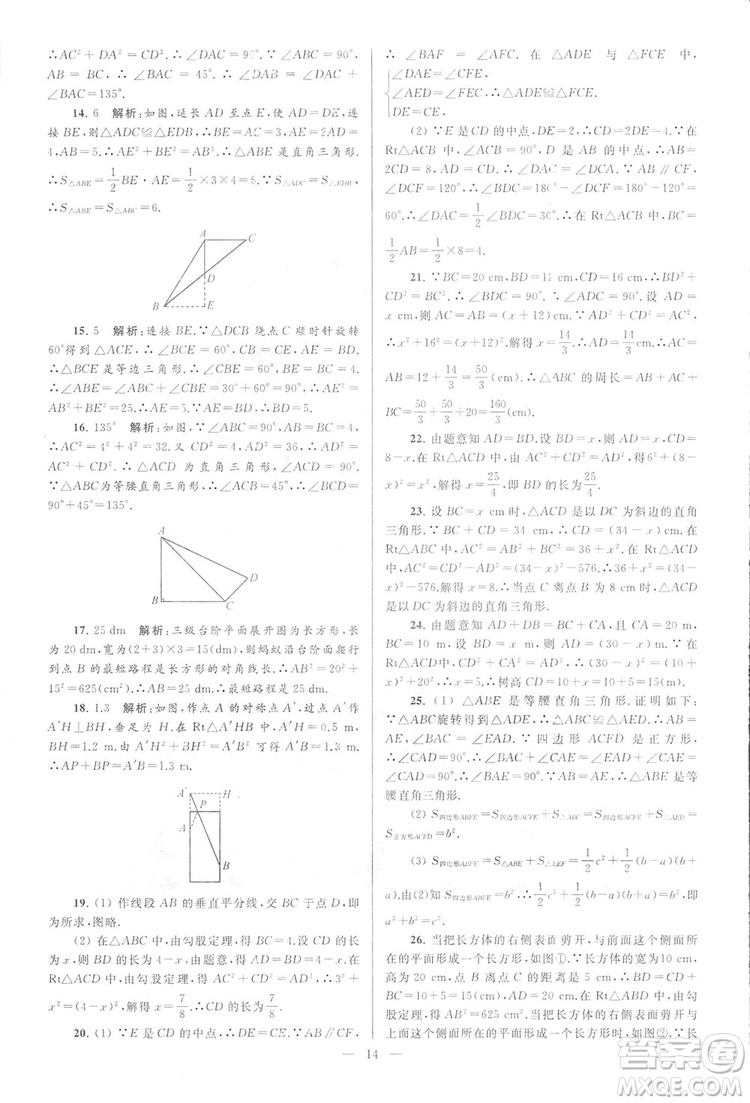 ∴AC²+DA²=CD².∴∠DAC=90°.∵∠ABC=90°,
AB=BC,∴∠BAC=45°.∴∠DAB=∠DAC+
∠BAC=135°.
14. 6 解析:如图,延长AD至点E,使AD=DE,连
接BE,则△ADC≌△EDB,∴BE=AC=3.∵AE=
2AD=4,AB=5,∴△ABE是直角三角形.
∴S△ABE=1/2BE·AE=1/2×3×4=6.∵S△ADC=S△EDB,
∴S△ABC=S△ABE=6.
A
C
D
B
E
15. 5 解析:连接BE.∵△DCB绕点C顺时针旋转
60°得到△ACE,∴△DCB≌△ACE,AE=BD.∴
△BCE是等边三角形.∵∠ABC=30°,∠CBE=60°,
∴∠ABE=∠ABC+∠CBE=90°.∴BD²=AE²=
AB²+BE²=25.∴BD=AE=5.
16. 135° 解析:如图,∵AD²=4²+3²=25,
AC²=4²+2²=20,CD²=1²+2²=5,∴AD²=
AC²+CD².∴△ACD为直角三角形,∠ACD=90°.
∵△ABC为等腰直角三角形,∴∠BCD=
90°+45°=135°.
A
D
B
C
17. 25 dm 解析:三级台阶平面展开图为长方形,长
为20 dm,宽为(2+3)×3=15(dm),则蚂蚁沿台阶面爬行
到点B的最短路程是长方形的对角线长.∴AB²=20²+
15²=625(dm²).∴AB=25 dm.
18. 1.3 解析:如图,作点A的对称点A′,过点A′作
A′H⊥BH,垂足为H.在Rt△A′HB中,A′H=0.5 m,
BH=1.2 m,由勾股定理,可得A′B=1.3 m.
∴AP+PB=A′B=1.3 m.
A′
H
P
A
B
19. (1) 作线段AB的垂直平分线,交BC于点D,点D即
为所求,图略.
(2) 在△ABC中,由勾股定理,得BC=4.设CD的长
为x,则AD=BD=4-x.由勾股定理,得CD²+AC²=AD²,即
x²+3²=(4-x)².解得x=7/8.∴CD的长为7/8.
20. (1) ∵E是CD的中点,∴DE=CE.∵AB∥CF,
∴∠BAF=∠AFC.在△ADE与△FCE中,
∠DAE=∠CFE,
∠AED=∠FEC,∴△ADE≌△FCE(AAS).
DE=CE,
(2) ∵E是CD的中点,∴CD=2DE=4.∵在
Rt△ACB中,∠ACB=90°,D是AB的中点,∴AB=
2CD=8,AD=CD=1/2AB.∵AB∥CF,∴∠BDC=180°-
∠DCF=180°-120°=60°.∴∠DAC=∠ACD=1/2∠BDC=1/2×
60°=30°.∴在Rt△ABC中,BC=
1/2AB=1/2×8=4.
21. ∵BC=20 cm,CD=16 cm,BD=12 cm,
∴BC²=BD²+CD².∴△BDC为直角三角形.设AD=
x cm,则AC=AB=(x+12)cm.∵AC²=AD²+CD²,
∴x²+16²=(x+12)².解得x=14/3.∴AC=
AB=14/3+12=50/3(cm).∴△ABC的周长=AB+AC+
BC=50/3+50/3+20=160/3(cm).
22. 由题意知AD=BD.设BD=x,则AD=x,CD=
8-x.∵∠C=90°,∴AC²+CD²=AD².∴6²+(8-
x)²=x².解得x=25/4,即BD的长为25/4.
23. 设BC=x cm时,△ACD是以DC为斜边的直角
三角形.∵BC+CD=34 cm,∴CD=(34-x)cm.在
Rt△ABC中,AC²=AB²+BC²=36+x²,在Rt△ACD
中,AC²=CD²-AD²=(34-x)²-576,∴36+x²=(34-
x)²-576.解得x=8.∴当点C离点B 8 cm时,△ACD
是以DC为斜边的直角三角形.
24. 由题意知AD+DB=BC+CA.∵CA=20 m,
BC=10 m,设AD=x m,则DB=(30-x)m.在
Rt△ACD中,CD²+CA²=AD²,即(30-x+10)²+20²=
x².解得x=25.∴树高CD=10+5=15(m).
25. (1) △ABE是等腰直角三角形.证明如下:∵
△ABC旋转得到△ADE,∴△ABC≌△ADE.∴AB=
AE,∠BAC=∠EAD.∵四边形ACFD是正方形,
∴∠CAD=90°.∴∠BAE=∠CAD=90°.∴△ABE是等
腰直角三角形.
(2) S四边形ABFE=S四边形ACFE+S△ABC=S四边形ACFE+S△ADE=
S正方形ACFD=b².
(3) S四边形ABFE=S△ABE+S△BFE=1/2c²+1/2(b+a)(b-a).
由(2)可知,b²=1/2c²+1/2(b+a)(b-a),∴
a²+b²=c².
26. 当把长方体的右侧表面剪开,与前面这个侧面所
在的平面形成一个长方形时(如图①).∵长方体的宽为
10 cm,高为20 cm,点B离点C的距离是5 cm,∴BD=
CD+BC=10+5=15(cm),AD=20 cm.在Rt△ABD中,由
勾股定理,得AB=25 cm.当把长方体的右侧表面剪开与
上面这个侧面所在的平面形成一个长方形时(如图②).∵长
— 14 —
答案圈
MXQE.COM